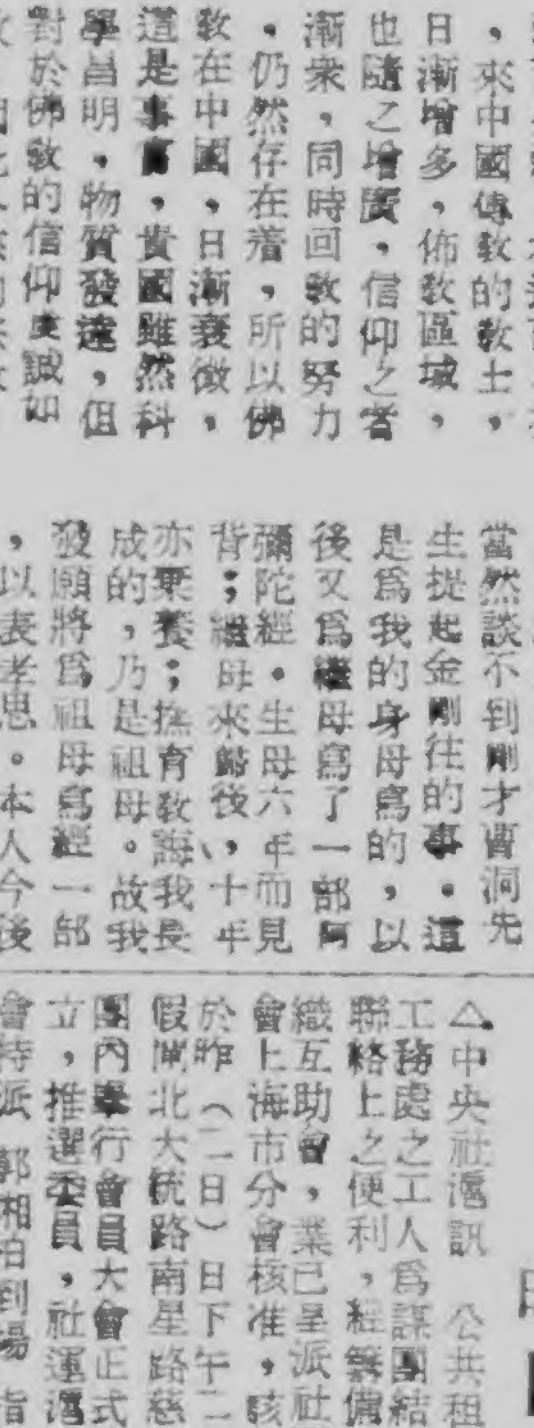 ，來中國傳敎的敎士，
日漸增多，佈敎區域，
也隨之增廣，信仰之者
漸衆，同時回敎的努力
，仍然存在着，所以佛
敎在中國，日漸衰微，
道是事實，貴國雖然科
學昌明，物質發達，但
對於佛敎的信仰虔誠如
當然談不到剛才曹洞先
生提起金剛往的事。這
是爲我的身母寫的，以
後又爲繼母寫了一部阿
彌陀經。生母六年而見
背；繼母來歸後，十年
亦棄養；撫育敎誨我長
成的，乃是祖母。故我
發願將爲祖母寫經一部
，以表孝思。本人今後
△中央社滬訊　公共租
工務處之工人爲謀團結
聯絡上之便利，經籌備
織互助會，業已呈派社
會上海市分會核准，該
於昨（二日）日下午二
假閘北大統路南星路慈
團內舉行會員大會正式
立，推選委員，社運滬
會特派 郭相柏到場 指